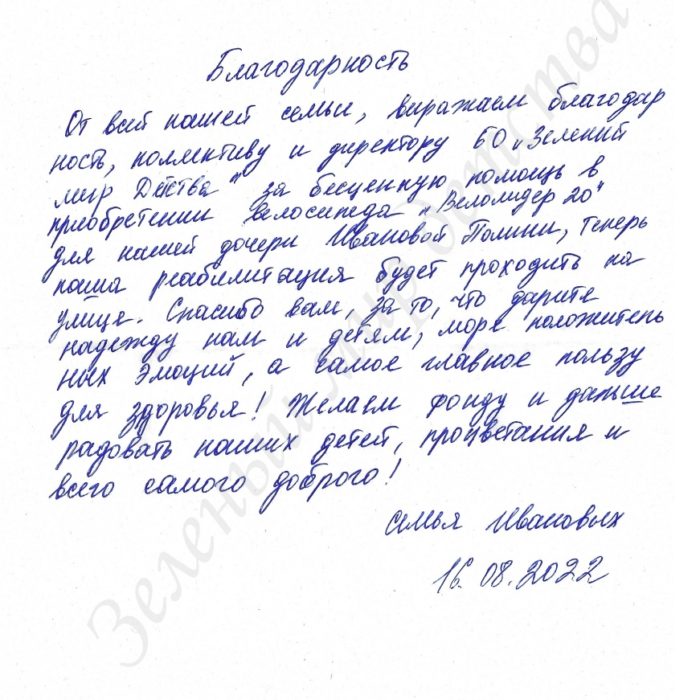 Благодарность
От всей нашей семьи, виражаем благодар
ность, коллективу и директору БО „Зелений
мир Детства" за бесценную помощь в
приобретении велосипеда „Велолидер 20"
для нашей дочери Ивановой Полини, теперь
наша реабилитация будет проходить на
улице. Спасибо вам, за то, что дарите
надежду нам и детям, море положитель
ных эмоций, а самое главное пользу
для здоровья! Желаем фонду и дальше
радовать наших детей, процветания и
всего самого доброго!
Семья Ивановых
16.08.2022
Зеленый мир детства